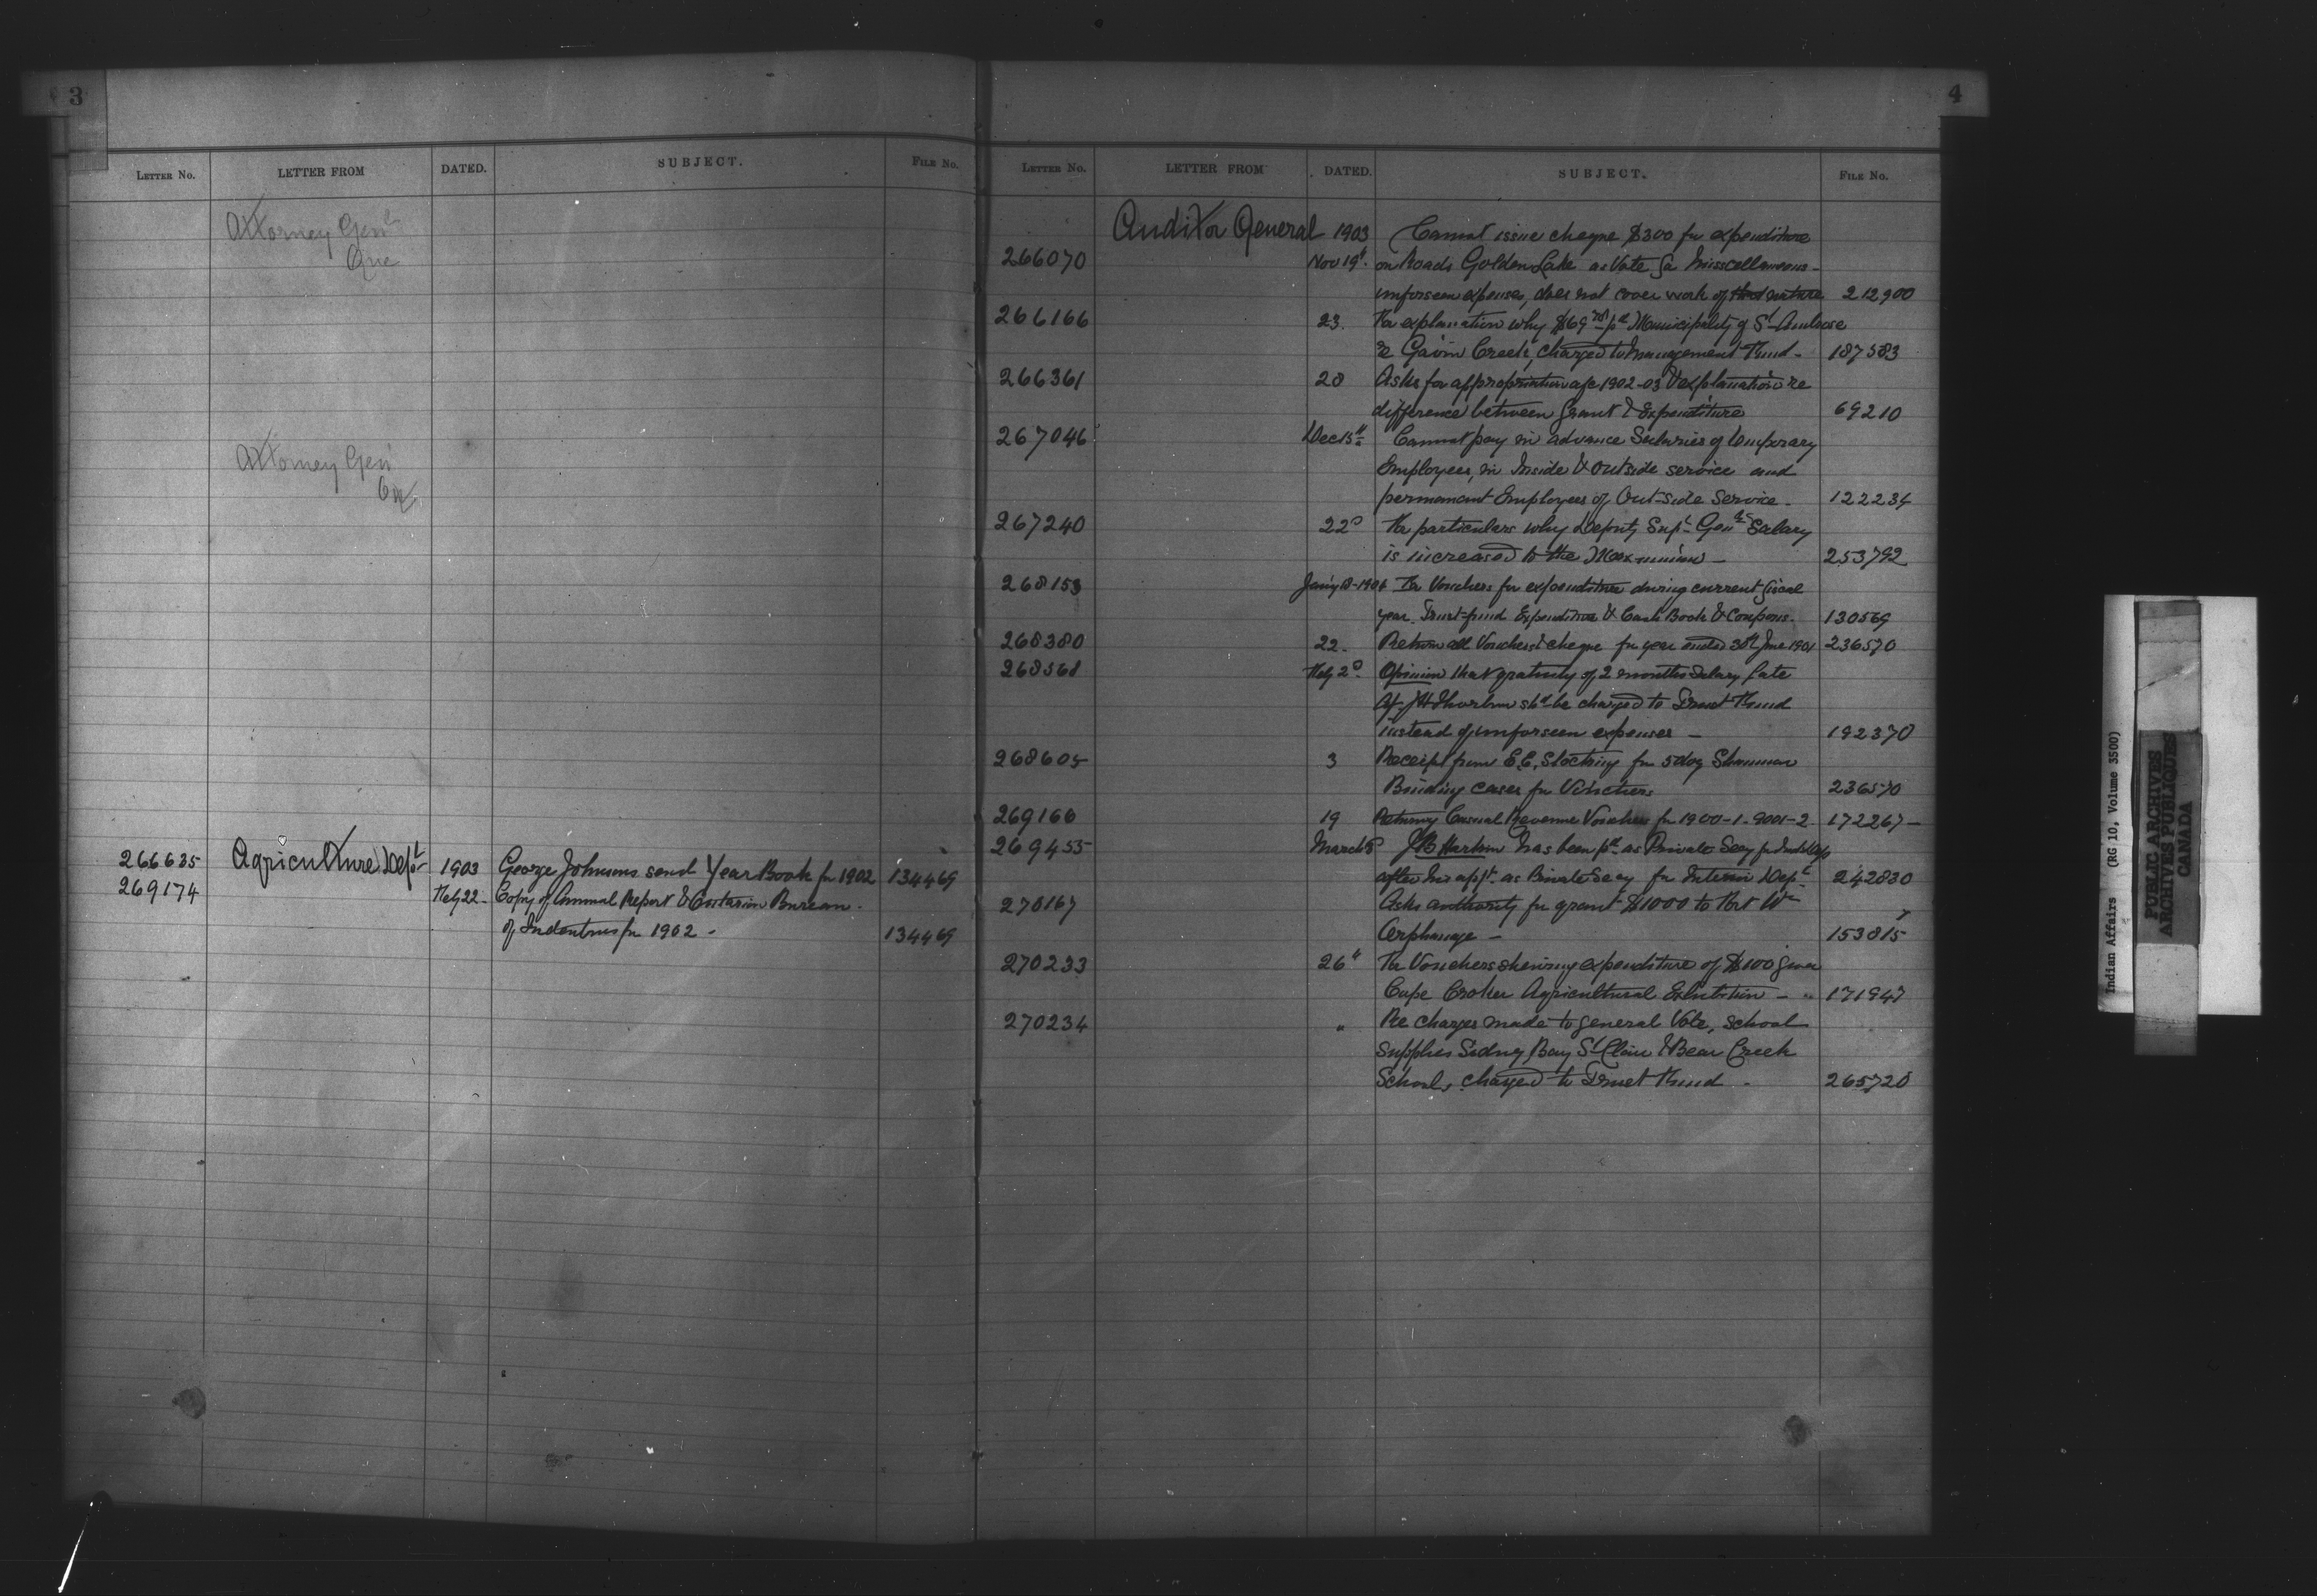 3
LETTER NO. LETTER FROM DATED. SUBJECT. FILE No.
Attorney Genl
Que
Attorney Gen
Agriculture Dept
266635 1903 George Johnson send Year Book for 1902 134469
269174 Feby 22 - Copy of Annual Report & Bureau -
of for 1902 - 134469
4
LETTER NO. LETTER FROM DATED. SUBJECT. FILE No.
Auditor General 1903 Cannot issue cheque $300 for expenditure
266070 Nov 19t. on Roads Golden Lake as Vote for Misscellaneous -
unforseen expenses, does not cover work of that nature 212900
266166 23. For explanation why $69 pd Municipality of St Ambrose
re Gavin Creek, charged to Management Fund - 187583
266361 28 Asks for appropriation a/c 1902-03 & explanation re
difference between Grant & Expenditure 69210
267046 Dec 15th Cannot pay in advance Salaries of temporary
Employees, in Inside & Outside service and
permanent Employees of Out-side Service - 122234
267240 22d For particulars why Deputy Supt Genls Salary
is increased to the Maxmium - 253792
268153 Jany 18-1904 For Vouchers for expenditure during current fiscal
year. Trust-fund Expenditure & Cash Book & Coupons - 130569
268380 22 - Return all Vouchers & cheque for year ended 30th June 1901 236570
268568 Feby 2d. Opinion that gratuity of 2 months Salary late
Ag. J H Thorburn shd be charged to Trust Fund
instead of unforseen expenses - 192370
268605 3 Receipt from E.E. Stocking for 5 doz Shannon
Binding cases for Vouchers 236570
269166 19 Returning Casual Revenue Vouchers for 1900-1-9001-2 172267 -
269455 March 8 J B Harkin has been pd as Private Secy for
after his appt. as Private Secy for Interior Dept 242830
270167 Asks authority for grant $1000 to Fort Wm
Orphanage - 153815
270233 26" For Vouchers shewing expenditure of $100 given
Cape Croker Agricultural Exhibition - " 171947
270234 " Re charges made to general Vote, school
supplies Sidney Bay St Clair & Bear Creek
Schools charged to Trust Fund - 265720
Indian Affairs (RG 10, Volume 3500)
PUBLIC ARCHIVES
ARCHIVES PUBLIQUES
CANADA